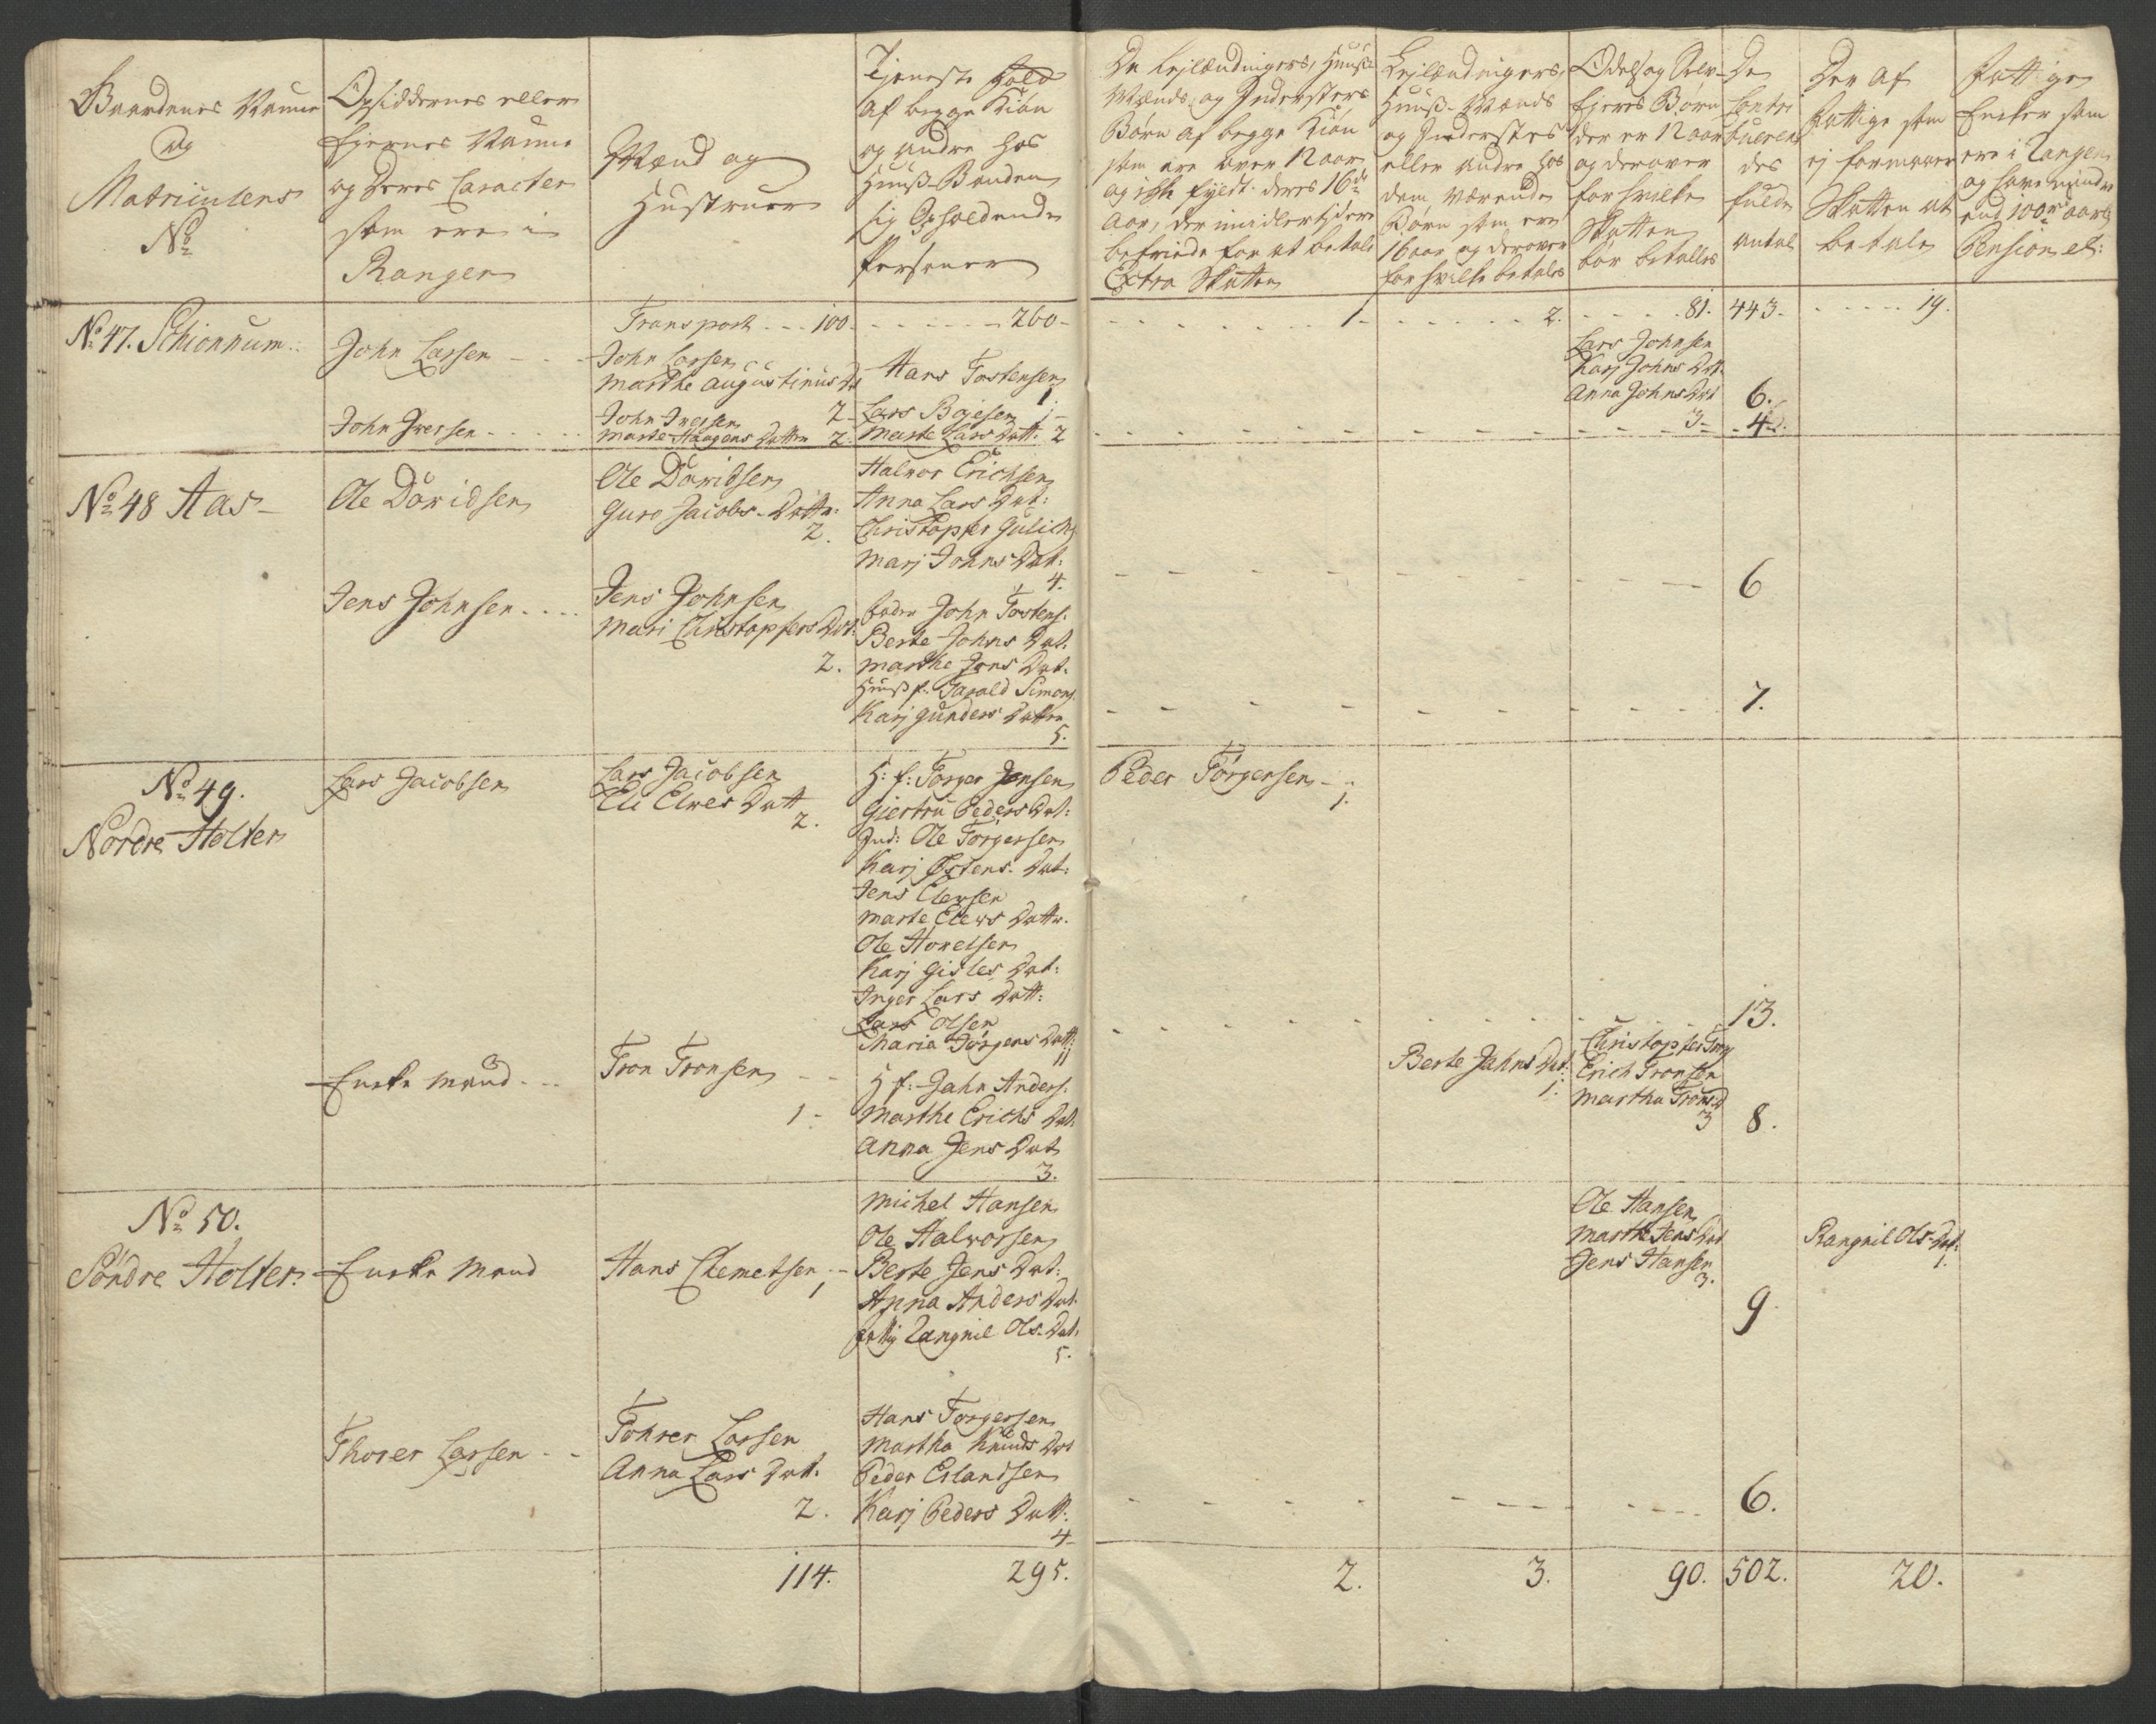 Gaardenes Naune
og
Matriculens
No
Opsiddernes eller
Ejernes Naune
og deres Caracter
som ere i
Rangen
Mænd og
Hustruer
Tjeneste Folk
af begge Kiøn
og andre hos
Huus-Bonden
sig Opholdende
Personer
De Lejlændingers, Huus-
Mænds og Indersters
Børn af begge Kiøn
som ere over 12 aar
og ikke fyldt deres 16de
Aar, der imidlertid ere
befriede for at betale
Extra Skatten
Lejlændingers,
Huus-Mænds
og Inderstes
eller andre hos
dem værende
Børn som ere
16 aar og derover
for hvilke betales
Odels og Selv-
Ejeres Børn
der er 12 aar
og derover
for hvilke
Skatten
bør betalles
De
Contri
buerendes
fulde
antal
Der af
Fattige som
ej formaaer
Skatten at
betale
Fattige
Encker som
ere i Rangen
og have mindre
end 100 rd aarl
Pension et:
Transport - - - 100 - - - - - 260 - - - - - 1 - - - - - 2. - - - - 81. 443 - - - - - 19.
No 47. Schionnum
John Larsen
John Larsen
Marthe Augustinus Dr
2
Hans Tostensen
1.
Lars Johnsen
Karj Johns Dat
Anna Johns Dat
3
6.
John Iversen
John Iversen
Marte Haagens Datter 2
Lars Bojesen
Marte Lars Datt: 2
4
No 48 Aas
Ole Davidsen
Ole Davidsen
Guro Jacobs-Dattr:
2.
Halvor Erichsen
Anna Lars Dat:
Christopher Gulich
Marj Johns Dat:
4.
6
Jens Johnsen
Jens Johnsen
Mari Christophers Dat:
2.
Fader John Tostens:
Berte Johns Dat.
Marthe Jens Dat.
Huusf. Harald Simons
Karj Gunders Datter
5.
7.
No 49.
Nordre Holter
Lars Jacobsen
Lars Jacobsen
Eli Elwes Datt
2.
H: f: Torger Jensen
Giertru Peders Dat:
Ind: Ole Torgersen
Karj Østens. Dat:
Jens Elensen
Marte Elews Dattr.
Ole Hovelsen
Karj Gisles Dat:
Inger Lars Datt:
Lars Olsen
Maria Jörgens Datt:
11
Peder Torgersen
1.
13.
Encke Mand
Tron Tronsen
1
H f: Jahn Anders.
Marthe Erichs Dat.
Anna Jens Dat
3.
Berte Jahns Dat:
1.
Christopher Tron
Erich Tronsen
Martha Trons d
3
8.
No 50.
Söndre Holter
Encke Mand
Hans Clemetsen
1
Michel Hansen
Ole Halvorsen
Berte Jens Dat:
Anna Anders Dat.
fattig Rangnil Ols-Dat.
5.
Ole Hansen
Marthe Jens Dat
Jens Hansen
3.
9
Rangnil Ols-Dat:
1.
Thorer Larsen
Tohrer Larsen
Anna Lars Datt.
2.
Hans Torgersen
Martha Knuds Dat
Peder Erlandsen
Karj Peders Datt:
4
6.
114. 295. 2. 3. 90. 502. 20.